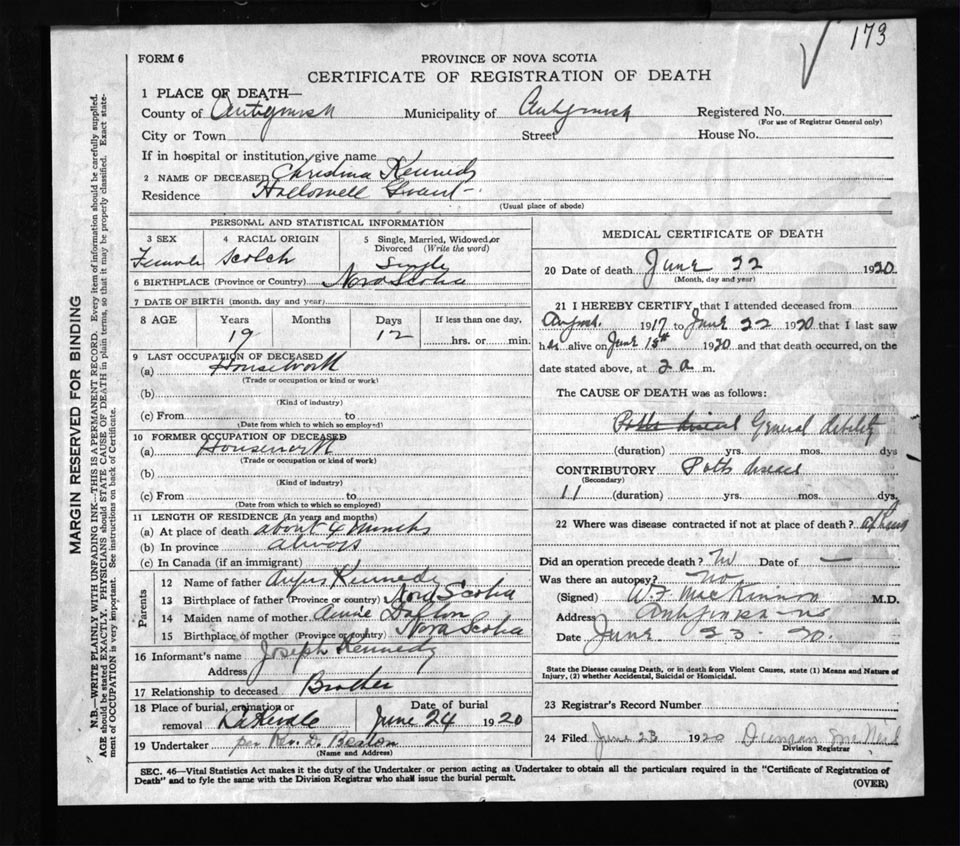 173
FORM 6
PROVINCE OF NOVA SCOTIA
CERTIFICATE OF REGISTRATION OF DEATH
1 PLACE OF DEATH—
County of Antigonish Municipality of Antigonish Registered No.
(For use of Registrar General only)
City or Town Street House No.
If in hospital or institution, give name
2 NAME OF DECEASED Christina Kennedy
Residence Hallowell Grant
(Usual place of abode)
PERSONAL AND STATISTICAL INFORMATION
3 SEX 4 RACIAL ORIGIN 5 Single, Married, Widowed, or
Divorced (Write the word)
Female Scotch Single
6 BIRTHPLACE (Province or Country) Nova Scotia
7 DATE OF BIRTH (month, day and year)
8 AGE Years Months Days If less than one day,
19 12 hrs. or min.
9 LAST OCCUPATION OF DECEASED
(a) Housework
(Trade or occupation or kind or work)
(b)
(Kind of industry)
(c) From to
(Date from which to which so employed)
10 FORMER OCCUPATION OF DECEASED
(a) Housework
(Trade or occupation or kind or work)
(b)
(Kind of industry)
(c) From to
(Date from which to which so employed)
11 LENGTH OF RESIDENCE (In years and months)
(a) At place of death about 4 months
(b) In province always
(c) In Canada (if an immigrant)
Parents
12 Name of father Angus Kennedy
13 Birthplace of father (Province or country) Nova Scotia
14 Maiden name of mother Annie
15 Birthplace of mother (Province or country) Nova Scotia
16 Informant's name Joseph Kennedy
Address
17 Relationship to deceased Brother
18 Place of burial, cremation or Date of burial
removal Lakevale June 24 1920
19 Undertaker per Rev. D. Beaton
(Name and Address)
MEDICAL CERTIFICATE OF DEATH
20 Date of death June 22 1920
(Month, day and year)
21 I HEREBY CERTIFY, that I attended deceased from
August 1917 to June 22 1920 that I last saw
her alive on June 18th 1920 and that death occurred, on the
date stated above, at 2 a m.
The CAUSE OF DEATH was as follows:
Potts disease General debility
(duration) yrs. mos. dys
CONTRIBUTORY Potts disease
(Secondary)
11 (duration) yrs. mos. dys.
22 Where was disease contracted if not at place of death? at home
Did an operation precede death? No Date of —
Was there an autopsy? No
(Signed) W. F. MacKinnon M.D.
Address Antigonish NS
Date June 23 20.
State the Disease causing Death, or in death from Violent Causes, state (1) Means and Nature of
Injury, (2) whether Accidental, Suicidal or Homicidal.
23 Registrar's Record Number
24 Filed June 23 1920 Duncan McNeil
Division Registrar
SEC. 46—Vital Statistics Act makes it the duty of the Undertaker or person acting as Undertaker to obtain all the particulars required in the "Certificate of Registration of
Death" and to fyle the same with the Division Registrar who shall issue the burial permit.
(OVER)
MARGIN RESERVED FOR BINDING
N.B.—WRITE PLAINLY WITH UNFADING INK—THIS IS A PERMANENT RECORD. Every item of information should be carefully supplied.
AGE should be stated EXACTLY. PHYSICIANS should STATE CAUSE OF DEATH in plain terms, so that it may be properly classified. Exact state-
ment of OCCUPATION is very important. See instructions on back of Certificate.